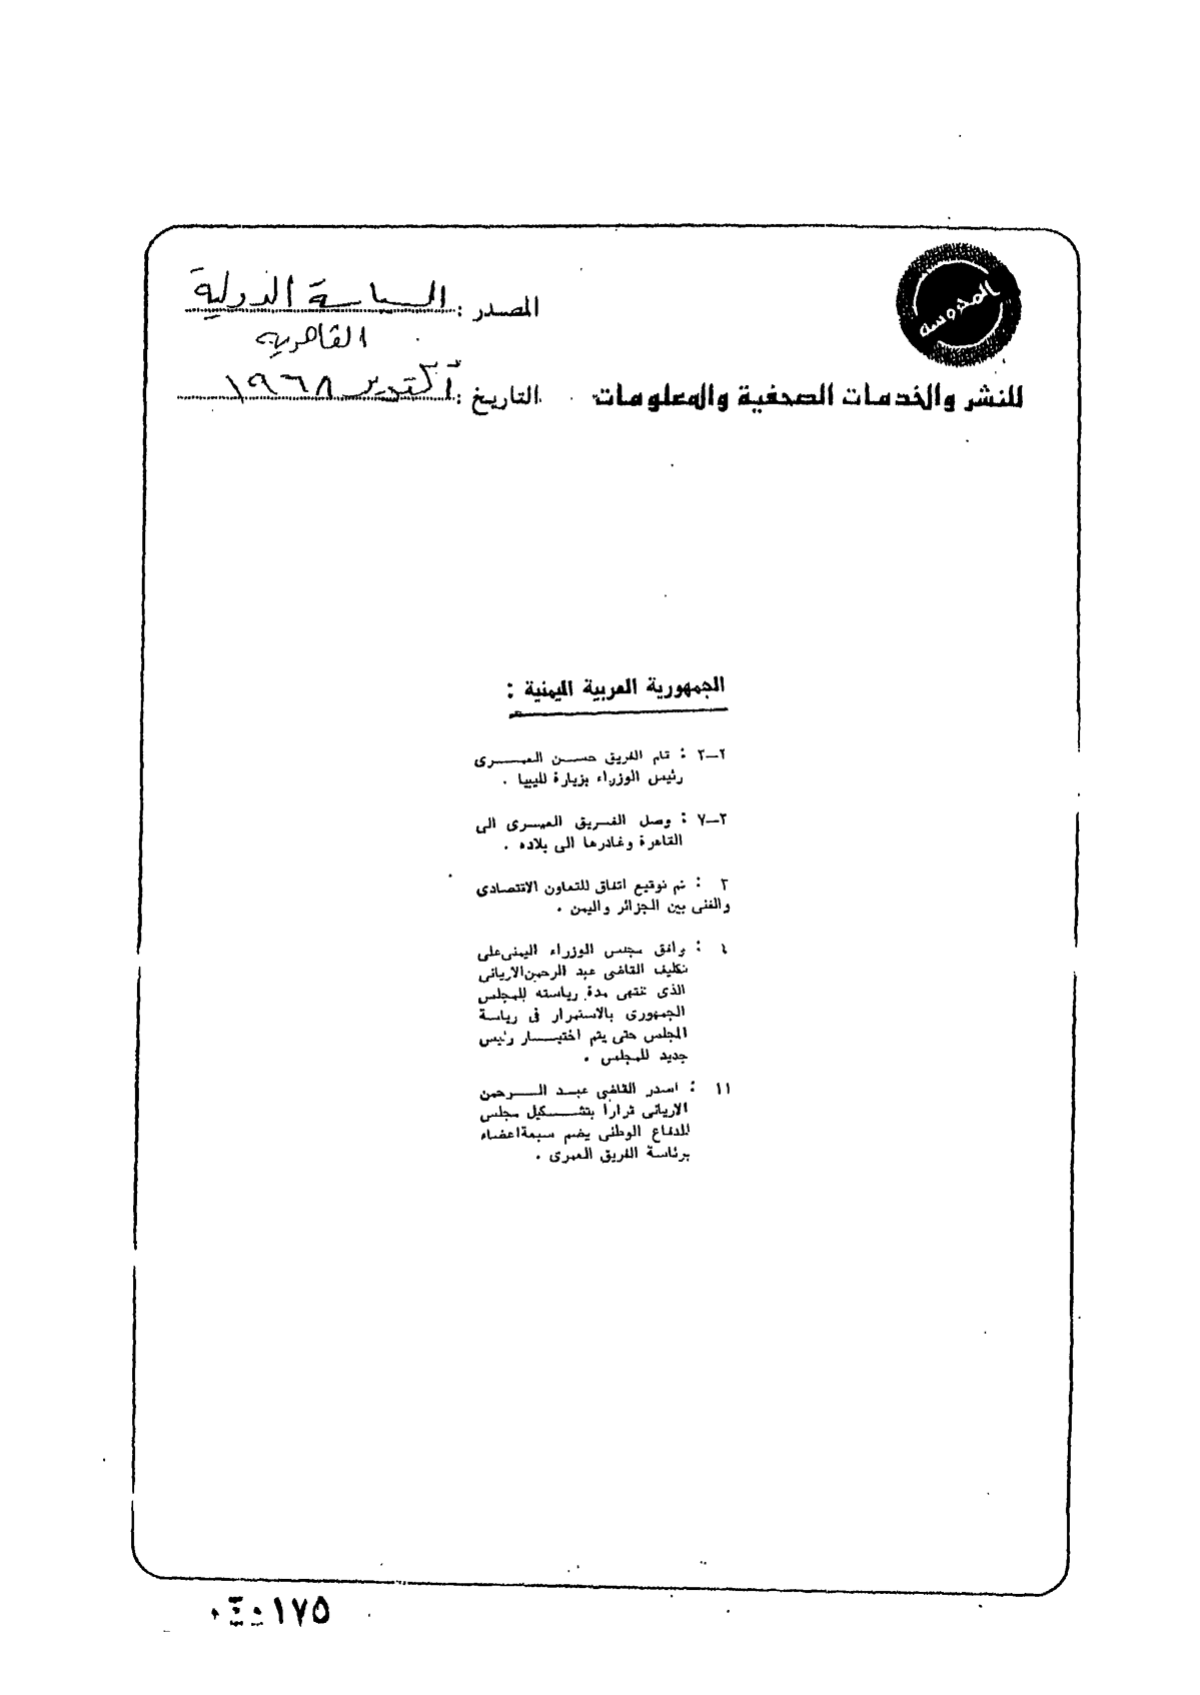 المحروسة
المصدر : السياسة الدولية
القاهرية
للنشر والخدمات الصحفية والمعلومات
التاريخ : أكتوبر ١٩٦٨
الجمهورية العربية اليمنية :
٢—٣ : قام الفريق حســن العمــرى
رئيس الوزراء بزيارة لليبيا .
٣—٧ : وصل الفريق العمرى الى
القاهرة وغادرها الى بلاده .
٣ : تم توقيع اتفاق للتعاون الاقتصادى
والفنى بين الجزائر واليمن .
٤ : وافق مجلس الوزراء اليمنى على
تكليف القاضى عبد الرحمن الاريانى
الذى تنتهى مدة رياسته للمجلس
الجمهورى بالاستمرار فى رياسة
المجلس حتى يتم اختيــار رئيس
جديد للمجلس .
١١ : اصدر القاضى عبد الــرحمن
الاريانى قرارا بتشــكيل مجلس
للدفاع الوطنى يضم سبعة اعضاء
برئاسة الفريق العمرى .
١٧٥